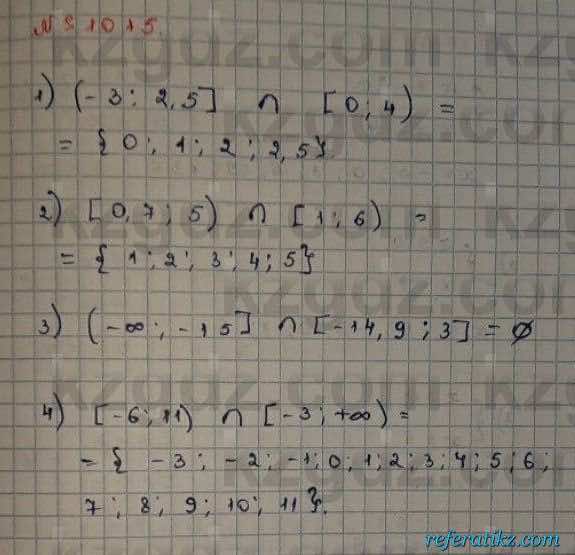 № 1015.
1) (-3; 2,5] ∩ [0; 4) =
= {0; 1; 2; 2,5}.
2) [0,7; 5) ∩ [1; 6) =
= {1; 2; 3; 4; 5}
3) (-∞; -15] ∩ [-14,9; 3] = ∅
4) [-6; 11) ∩ [-3; +∞) =
= { -3; -2; -1; 0; 1; 2; 3; 4; 5; 6;
7; 8; 9; 10; 11}.
referatikz.com